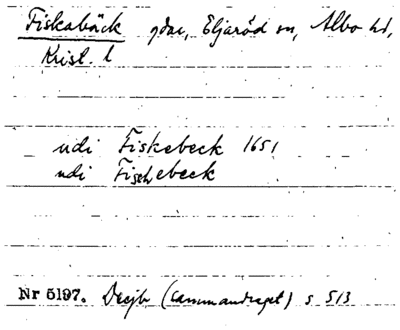 Fiskabäck gdar, Eljaröd sn, Albo hd,
Krist. l
udi Fiskebeck 1651
udi Fischebeck
Nr 5197. Decjb (Cammandraget) s 513